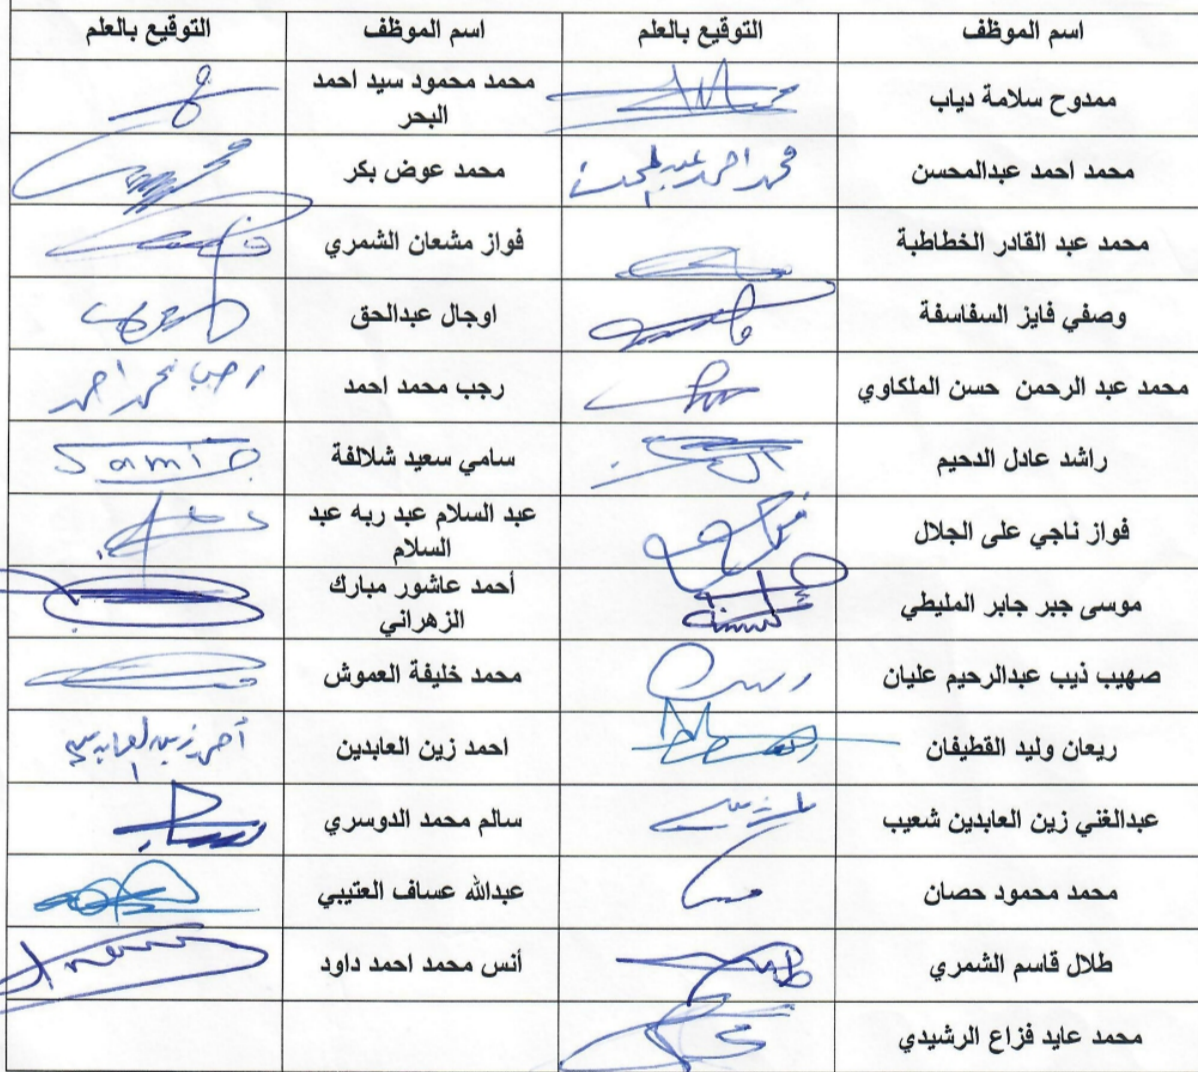 اسم الموظف التوقيع بالعلم اسم الموظف التوقيع بالعلم
ممدوح سلامة دياب محمد محمود سيد احمد
البحر
محمد احمد عبدالمحسن محمد احمد عبدالمحسن محمد عوض بكر
محمد عبد القادر الخطاطبة فواز مشعان الشمري
وصفي فايز السفاسفة اوجال عبدالحق
محمد عبد الرحمن حسن الملكاوي رجب محمد احمد رجب محمد احمد
راشد عادل الدحيم سامي سعيد شلالفة Sami
فواز ناجي على الجلال عبد السلام عبد ربه عبد
السلام
موسى جبر جابر المليطي أحمد عاشور مبارك
الزهراني
صهيب ذيب عبدالرحيم عليان محمد خليفة العموش
ريعان وليد القطيفان احمد زين العابدين أحمد زين العابدين
عبدالغني زين العابدين شعيب سالم محمد الدوسري
محمد محمود حصان عبدالله عساف العتيبي
طلال قاسم الشمري أنس محمد احمد داود
محمد عايد فزاع الرشيدي